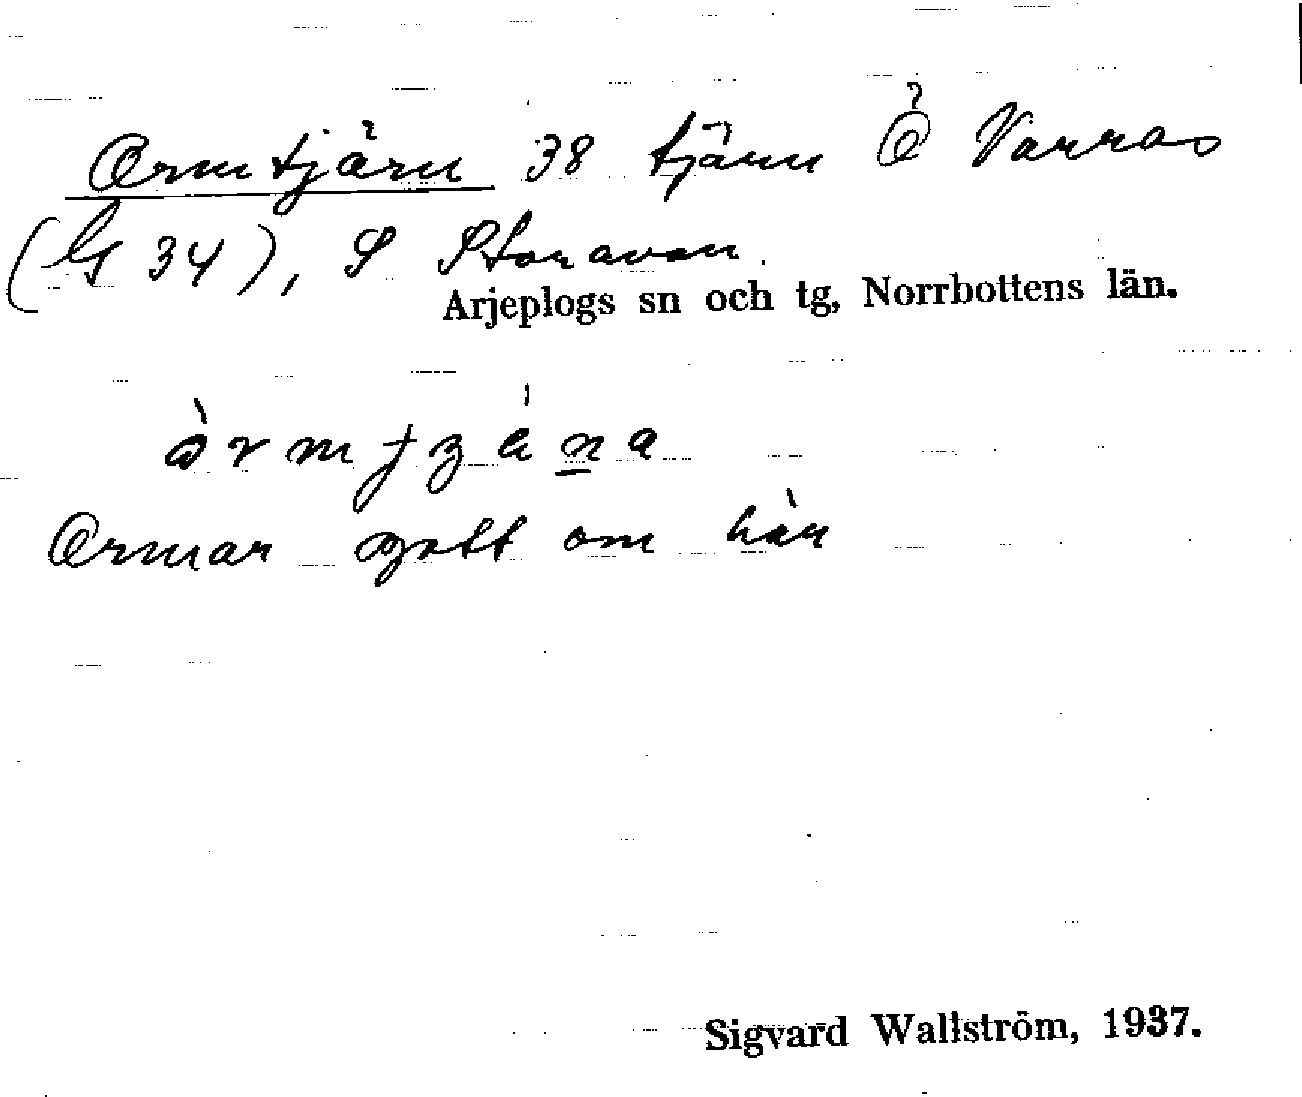 Ormtjärn 38 tjärn Ö Varras
(G 34), S Storavan.
Arjeplogs sn och tg, Norrbottens län.
Ormar gott om här
Sigvard Wallström, 1937.